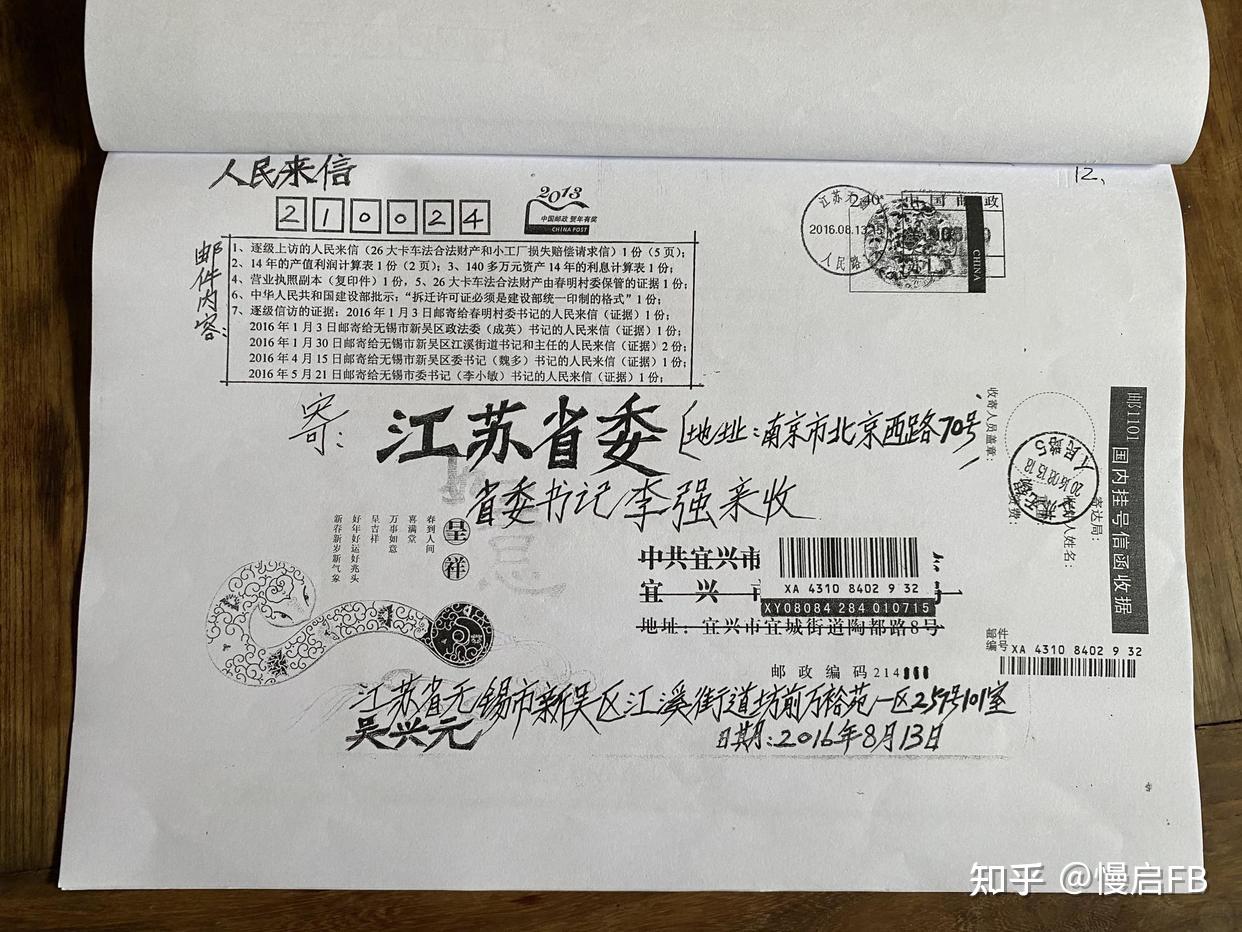 人民来信
12、
210024
2013
中国邮政 贺年有奖
CHINA POST
江苏无
2016.08.13
人民路
中国邮政
CHINA
邮件内容：
1、逐级上访的人民来信（26大卡车法合法财产和小工厂损失赔偿请求信）1份（5页）；
2、14年的产值利润计算表1份（2页）；3、140多万元资产14年的利息计算表1份；
4、营业执照副本（复印件）1份，5、26大卡车法合法财产由春明村委保管的证据1份；
6、中华人民共和国建设部批示；“拆迁许可证必须是建设部统一印制的格式”1份；
7、逐级信访的证据；2016年1月3日邮寄给春明村委书记的人民来信（证据）1份；
2016年1月3日邮寄给无锡市新吴区政法委（成英）书记的人民来信（证据）1份；
2016年1月30日邮寄给无锡市新吴区江溪街道书记和主任的人民来信（证据）2份；
2016年4月15日邮寄给无锡市新吴区委书记（魏多）书记的人民来信（证据）1份；
2016年5月21日邮寄给无锡市委书记（李小敏）书记的人民来信（证据）1份；
寄：
江苏省委（地址：南京市北京西路70号
省委书记李强亲收
呈祥
春到人间
喜满堂
万事如意
呈吉祥
好年好运好兆头
新春新岁新气象
中共宜兴市
宜兴市
XA 4310 8402 9 32
XY08084 284 010715
地址：宜兴市宜城街道陶都路8号
邮政编码214
江苏省无锡市新吴区江溪街道坊前万裕苑一区257号101室
吴兴元
日期：2016年8月13日
邮1101 国内挂号信函收据
收寄人员盖章：
寄达局：
人姓名：
费：
2016 08 13
人民路5
邮件编号 XA 4310 8402 9 32
知乎 @慢启FB